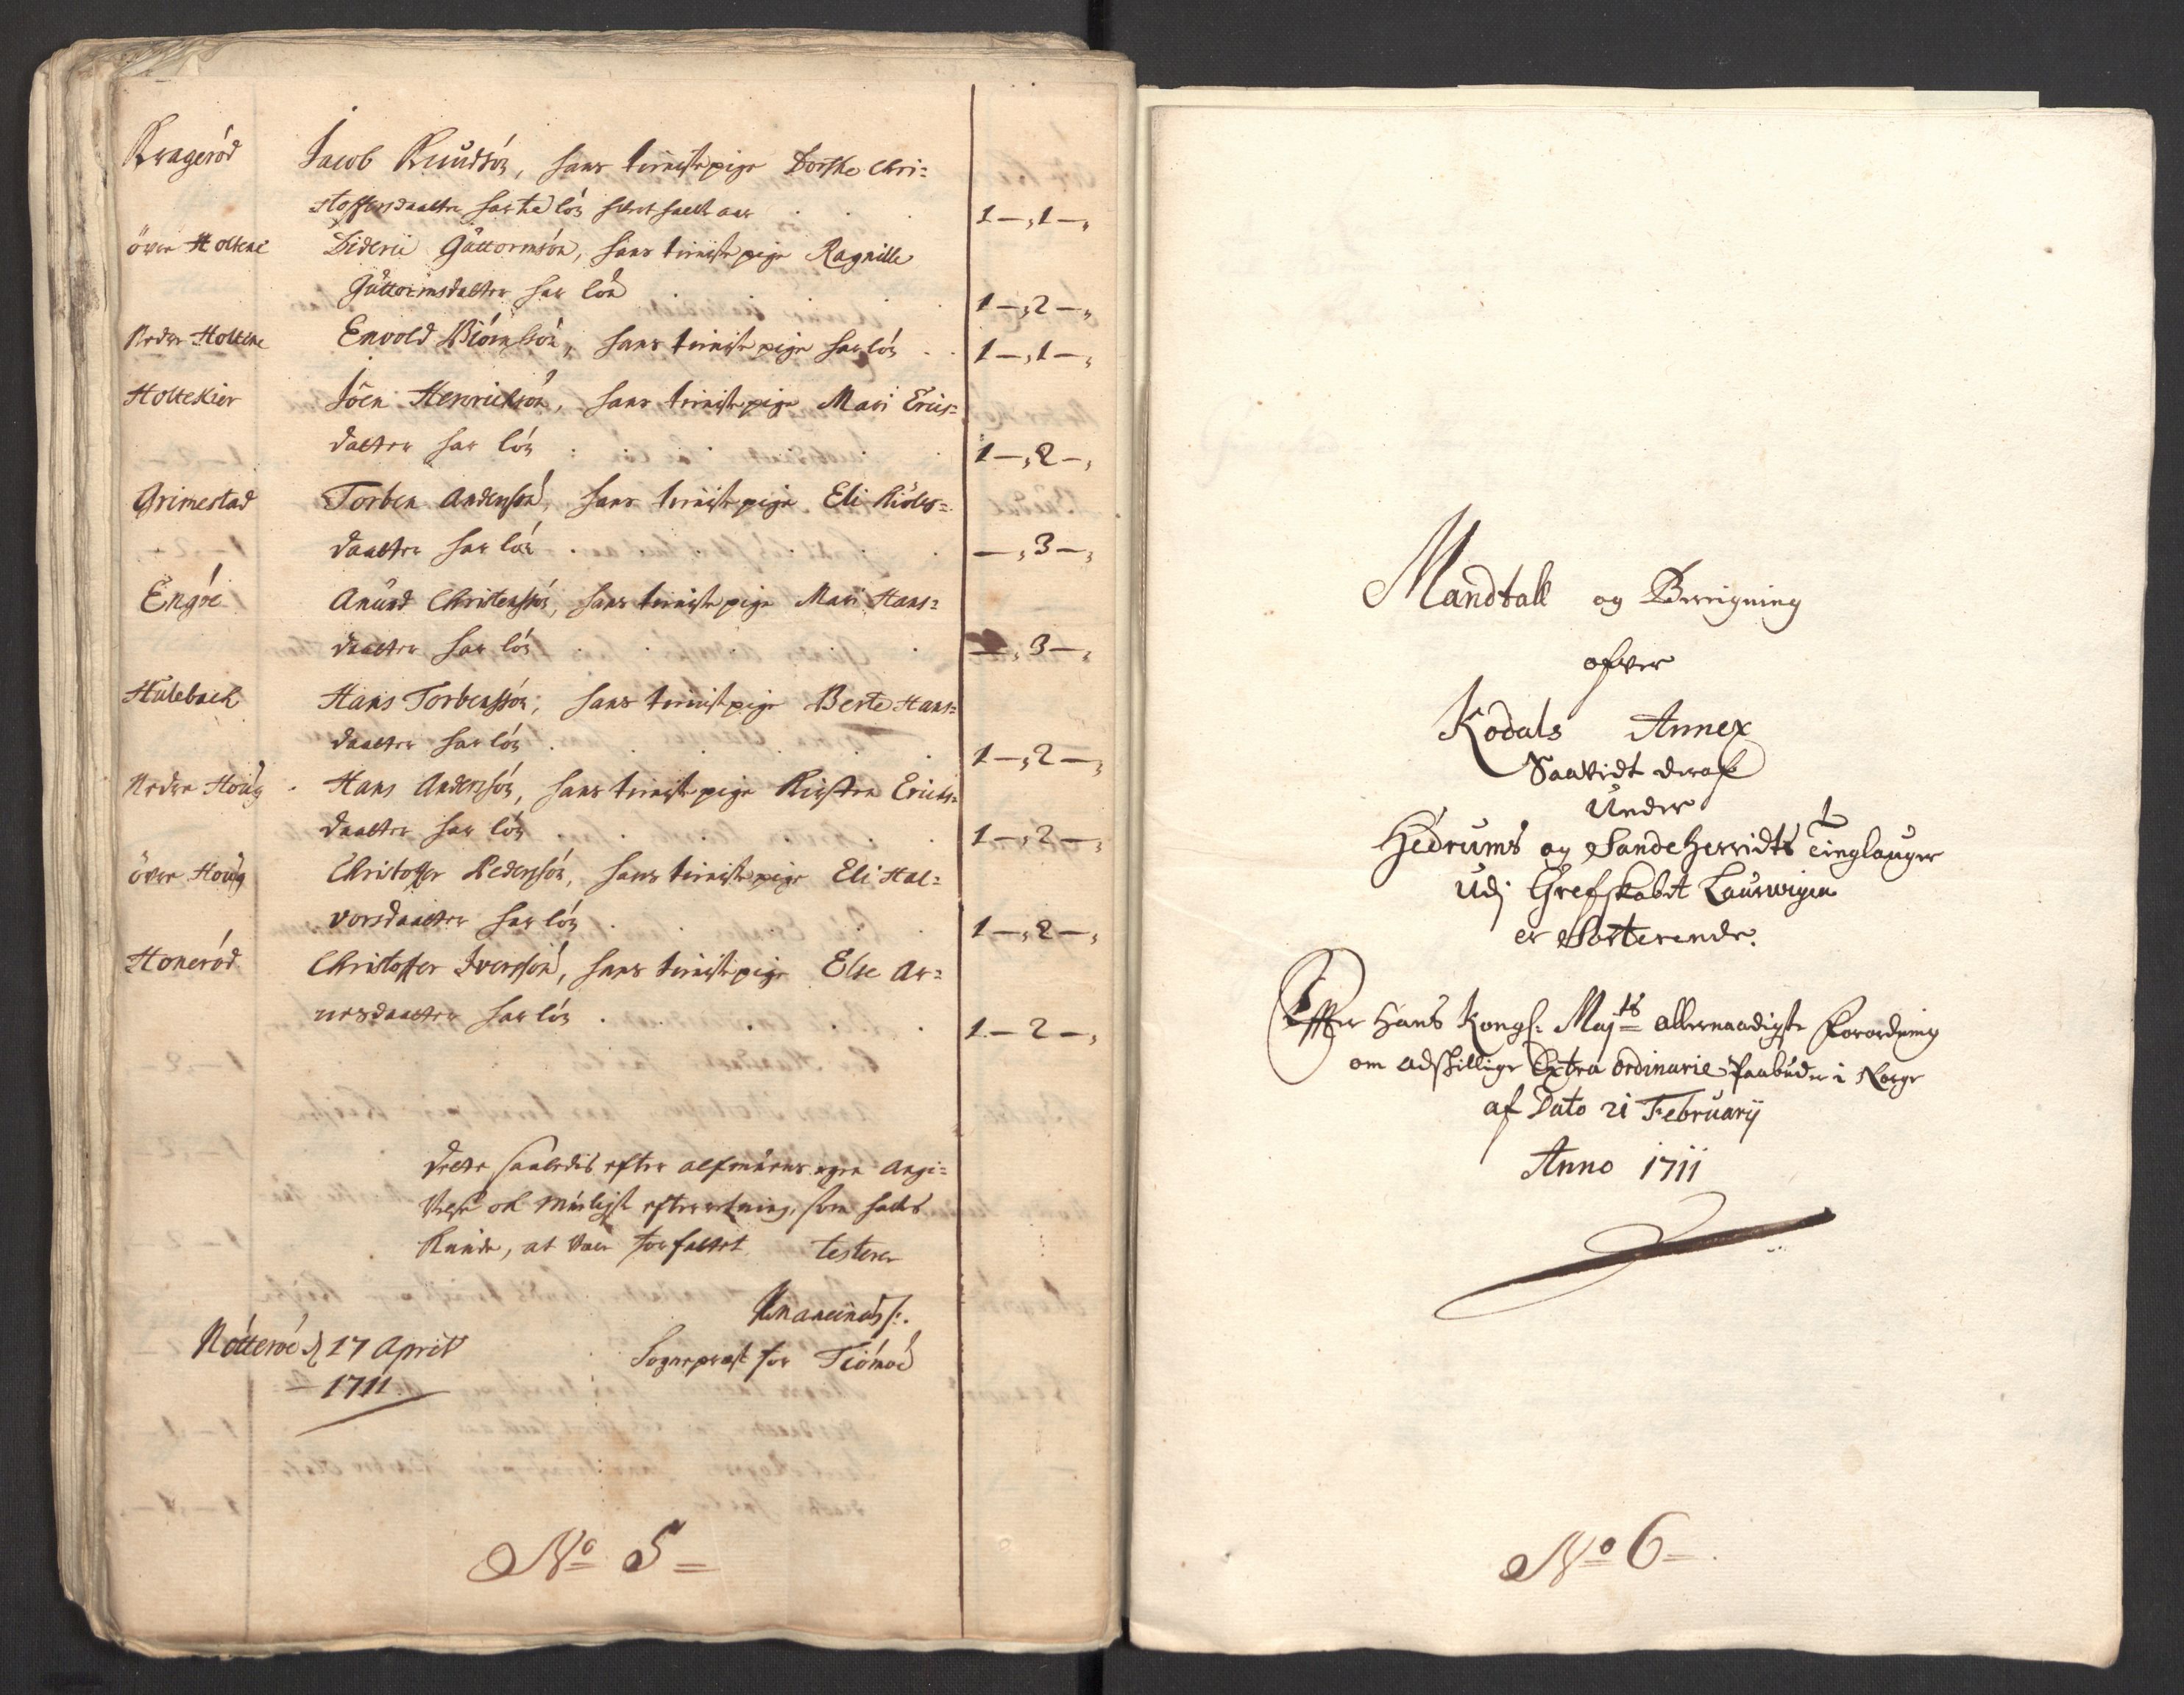 Krageröd Jacob Knudsön, hans tienistepige Dorthe Chri=
stoffersdaatter har til lön halft aar 1 — „ 1 — „
över Holtene Dideric Guttormsön, hans tieniste pige Ragnille
Guttormsdatter har lön 1 — „ 2 — „
Neder Holtene Envold Biörnsön, hans tieniste pige har lön 1 — „ 1 — „
Holtekier Jöen Henrichsön, hans tienistepige Mari Erics=
datter har lön 1 — „ 2 — „
Grimestad Torben Andersön, hans tienistepige Eli
daatter har lön — „ 3 — „
Engöe Anund Christensön, hans tienistepige Mari Hans=
daatter har lön — „ 3 — „
Hulebach Hans Torbensön, hans tienistpige Berte Hans=
daatter har lön 1 — „ 2 — „
Neder Houg Hans Andersön, hans tienistepige Kirsten Erichs=
daatter har lön 1 — „ 2 — „
över Houg Christoffer Pedersön, hans tienistepige Eli Hal=
vorsdaatter har lön 1 — „ 2 — „
Honeröd Christoffer Iversön, hans tienistepige Else Ar=
nesdaatter har lön 1 — 2 — „
Dette saaledis efter almuens egen Angi=
velse och efterretning, som haves
Kunde, at være forfattet testerer
Nötteröe d 17 April
1711
Sognepræst for Tiömöe
No 5
Mandtall og Beregning
ofver
Kodals Annex
Saavidt deraf
Under
Hedrums og Sandeherridts Tinglauger
Udj Grefskabet Laurwigen
er Sorterende.
Effter Hans Kongl: Majts allernaadigste Forordning
om adskillige Extra ordinarie Paabuder i Norge
af Dato 21 February
Anno 1711
No 6